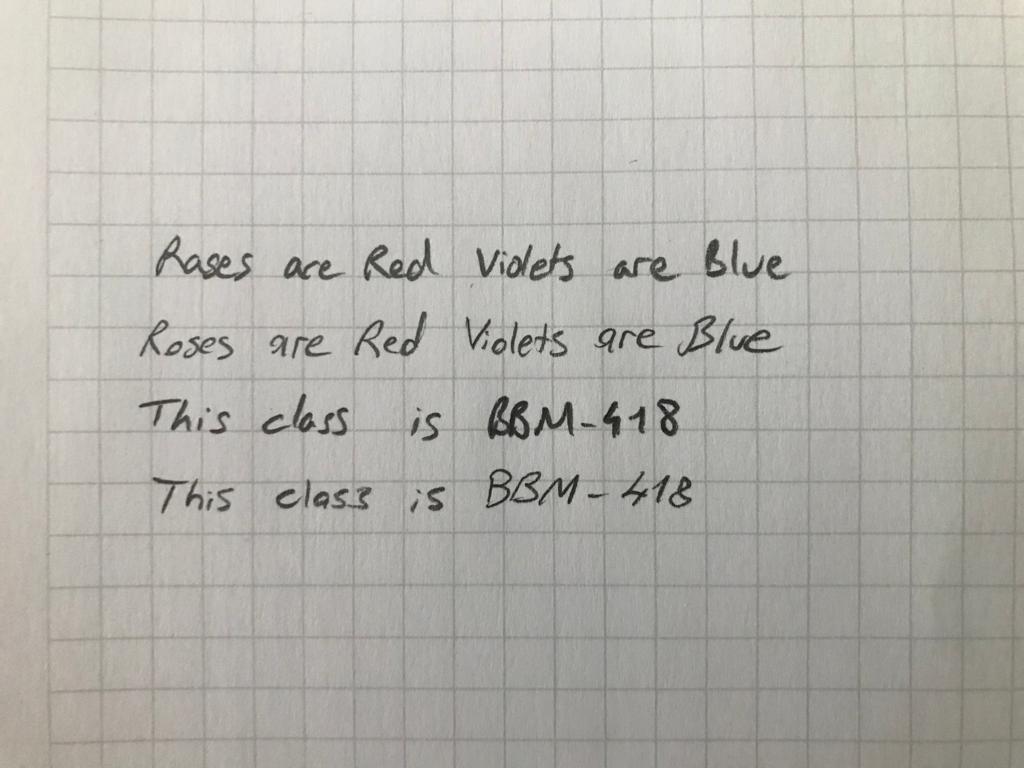 Rases are Red Violets are Blue
Roses are Red Violets are Blue
This class is BBM-418
This class is BBM-418